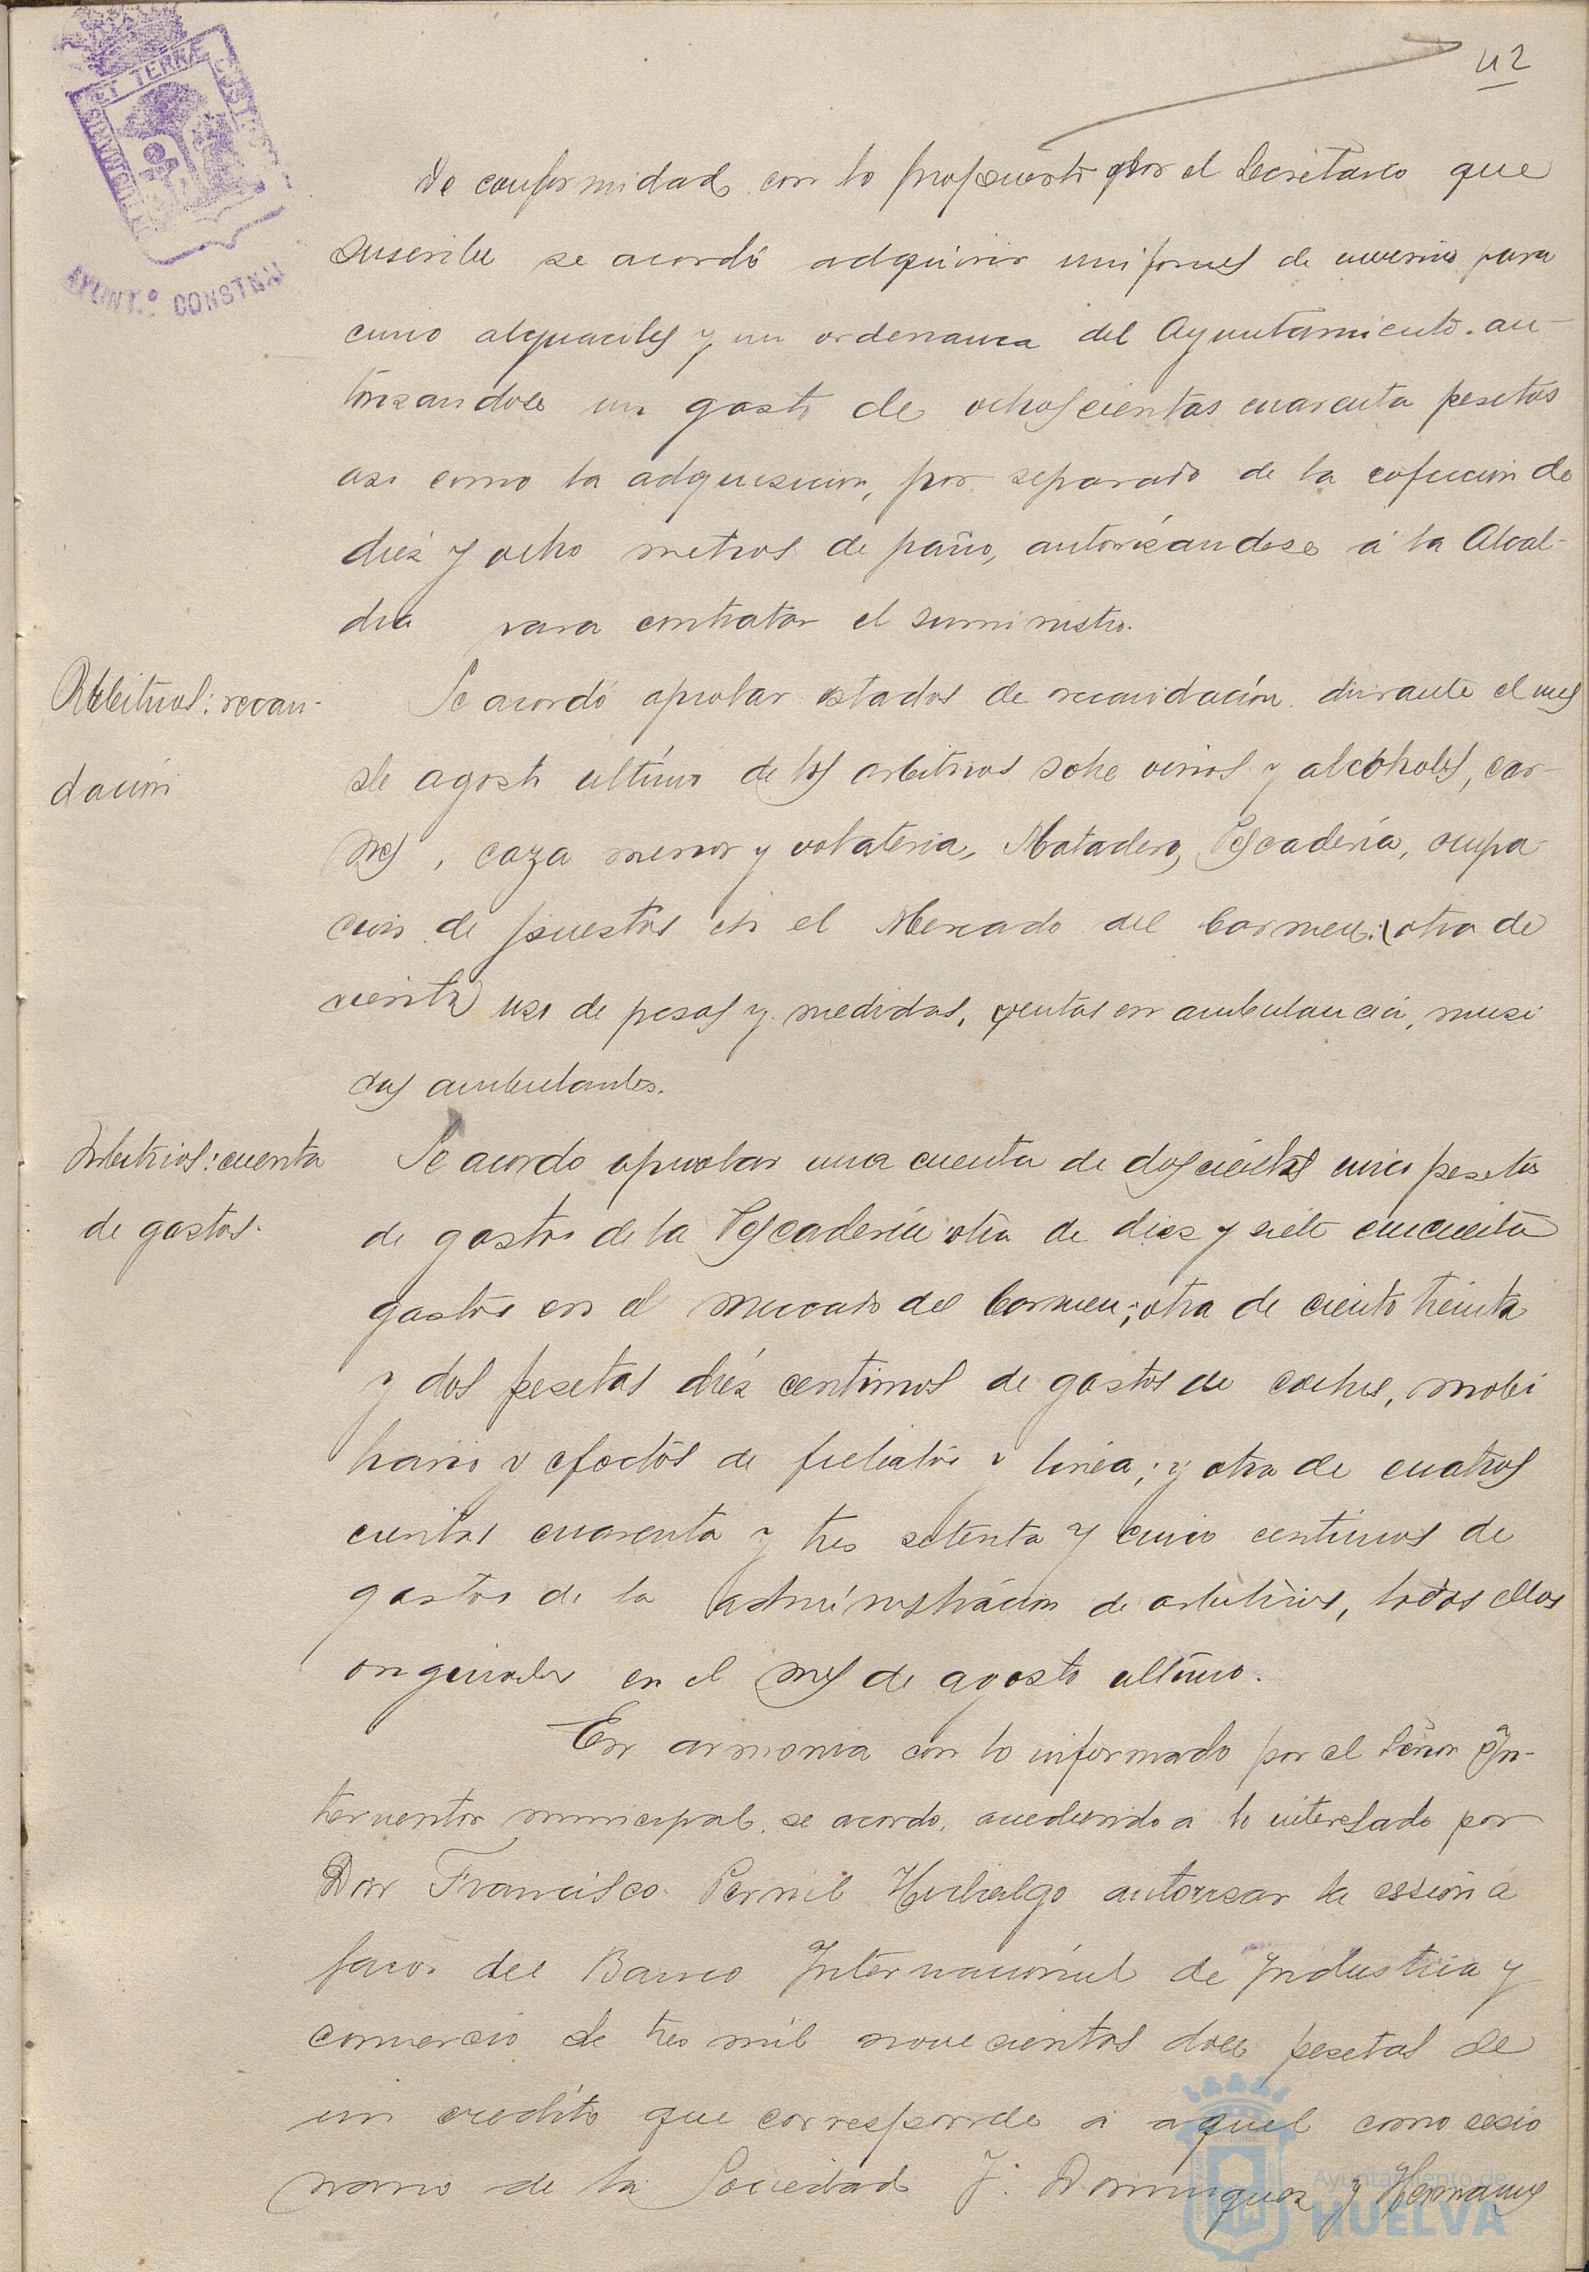 42
De conformidad con lo propuesto por el Secretario que
suscribe se acordó adquirir uniformes de invierno para
cinco alguaciles y un ordenanza del Ayuntamiento. au-
torizandose un gasto de ochoscientas cuarenta pesetas
asi como la adquisicion, por separado de la cofeccion de
diez y ocho metros de paño, autorizandose á la Alcal-
dia para contratar el suministro.
Arbitrios: recau-
dación
Se acordó aprobar estados de recaudación durante el mes
de agosto ultimo de los arbitrios sobre vinos y alcoholes, car-
nes, caza menor y volateria, Matadero, Pescadería, ocupa
cion de puestos en el Mercado del Carmen: (otra de
cienta) uso de pesas y medidas, ventas en ambulancia, musi
cos ambulantes.
Arbitrios: cuenta
de gastos.
Se acordo aprobar una cuenta de doscientas cinco pesetas
de gastos de la Pescaderia otra de diez y siete cincuenta
gastos en el mercado del Carmen; otra de ciento treinta
y dos pesetas diéz centimos de gastos de coches, mobi
liario y efectos de fielatos y linea; y otra de cuatros
cientas cuarenta y tres setenta y cinco centimos de
gastos de la administración de arbitrios, todos ellos
originados en el mes de agosto ultimo.
En armonia con lo informado por el Señor In-
terventor municipal se acordo, accediendo a lo interesado por
Don Francisco Pernil Hidalgo autorizar la cesión a
favor del Banco Internacional de Industria y
comercio de tres mil novecientas doce pesetas de
un credito que corresponde a aquel como cesio
nario de la Sociedad J. Dominguez y Hermanos
ET TERRÆ CUSTODIA
AYUNT.º CONSTNAL
Ayuntamiento de
HUELVA